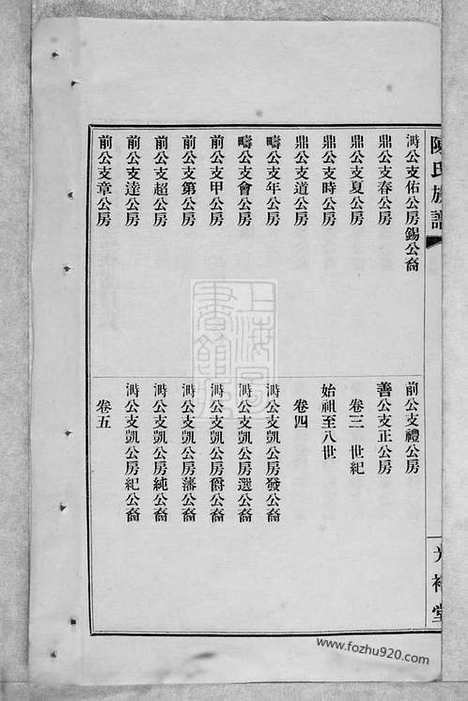 陳氏族譜
光裕堂
公支佑公房錫公裔
鼎公支春公房
鼎公支夏公房
鼎公支時公房
鼎公支道公房
疇公支年公房
疇公支會公房
前公支甲公房
前公支第公房
前公支超公房
前公支達公房
前公支章公房
前公支禮公房
善公支正公房
卷三 世紀
始祖至八世
卷四
公支凱公房發公裔
公支凱公房選公裔
公支凱公房爵公裔
公支凱公房藩公裔
公支凱公房純公裔
公支凱公房紀公裔
卷五
上海圖書館藏
www.fozhu920.com